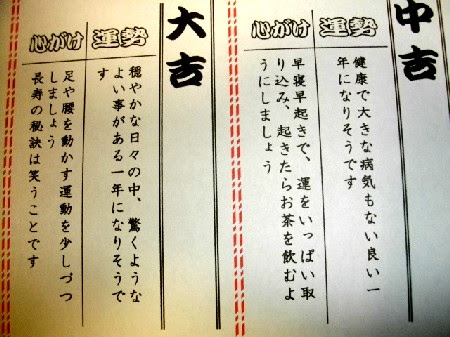 中吉
運勢
健康で大きな病気もない良い一
年になりそうです
心がけ
早寝早起きで、運をいっぱい取
り込み、起きたらお茶を飲むよ
うにしましょう
大吉
運勢
穏やかな日々の中、驚くような
よい事がある一年になりそうで
す
心がけ
足や腰を動かす運動を少しづつ
しましょう
長寿の秘訣は笑うことです